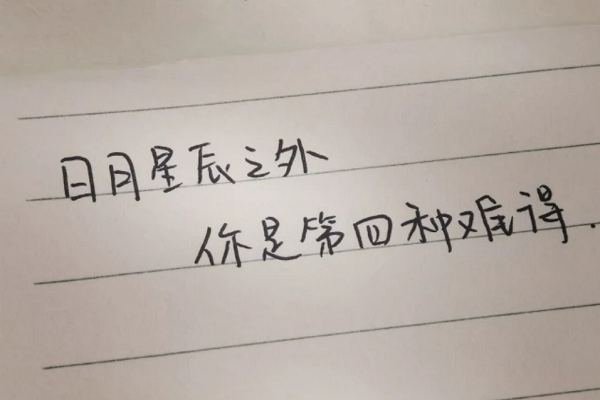 日月星辰之外
你是第四种难得.